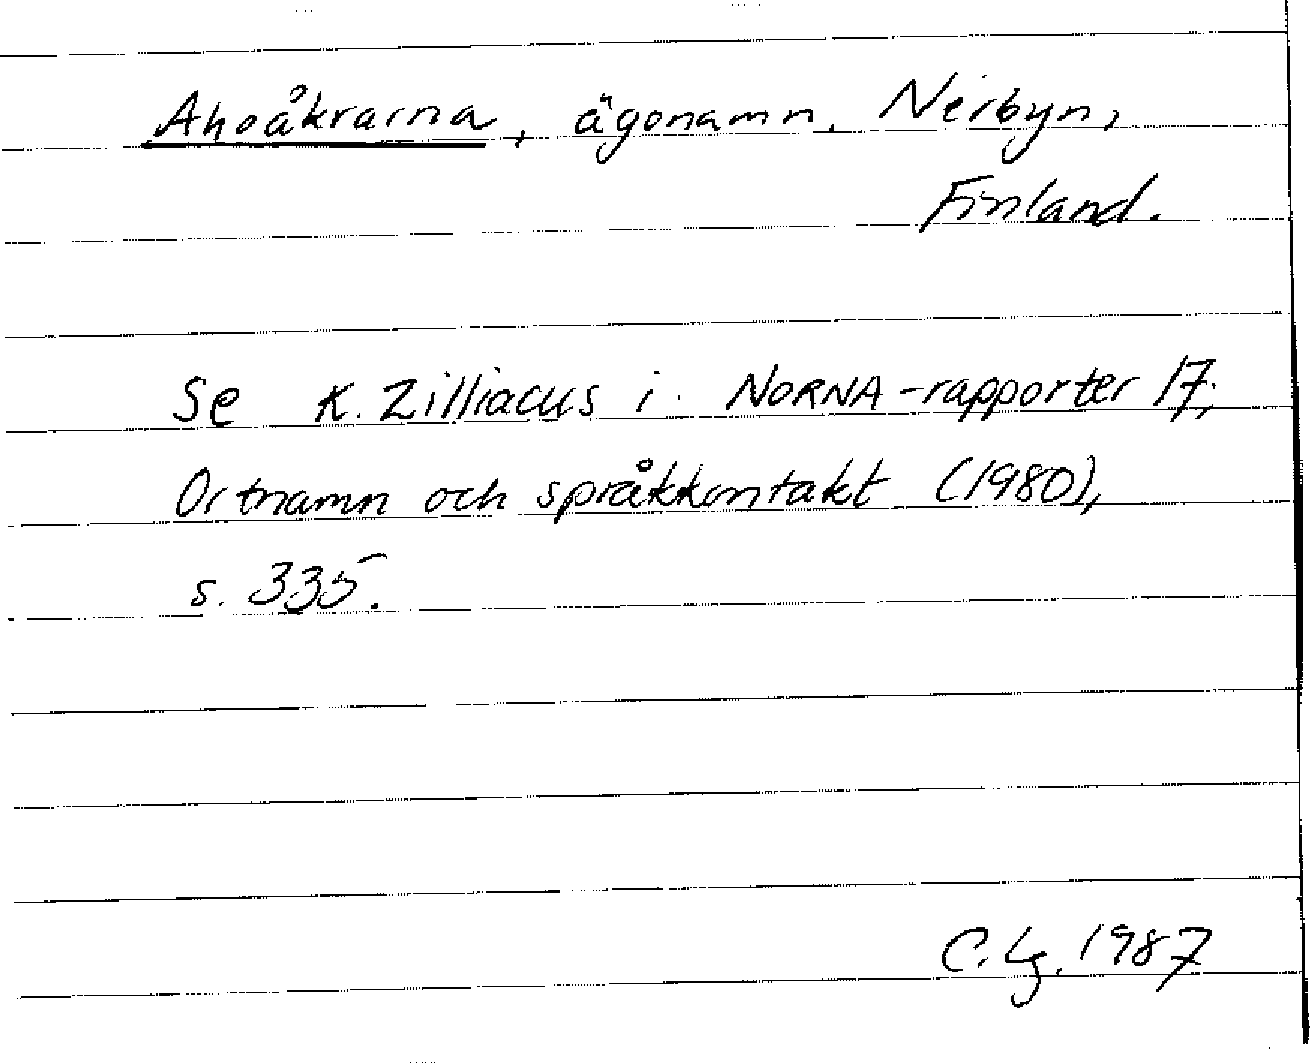 Ahoåkrarna, ägonamn, Neibyn,
Finland.
Se K. Zilliacus i NORNA-rapporter 17,
Ortnamn och språkkontakt (1980),
s. 335.
C. Lg. 1987